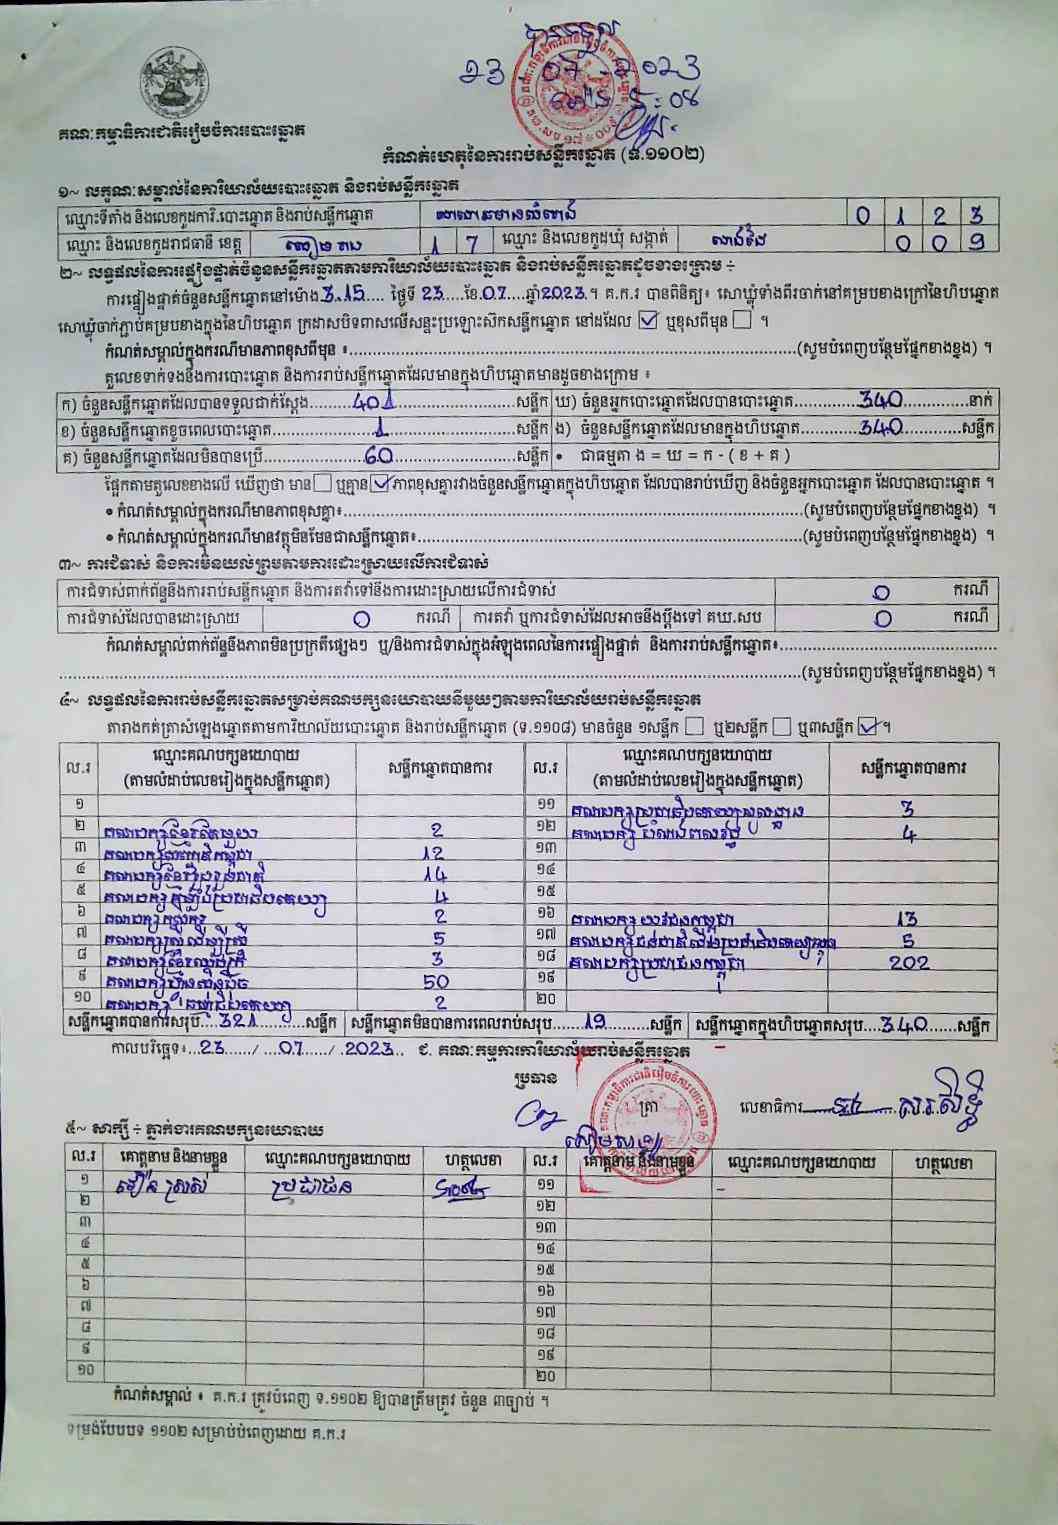 23 07 2023
គណៈកម្មាធិការជាតិរៀបចំការបោះឆ្នោត
កំណត់ហេតុនៃការរាប់សន្លឹកឆ្នោត (ទ.១១០២)
១~ លក្ខណៈសម្គាល់នៃការិយាល័យបោះឆ្នោត និងរាប់សន្លឹកឆ្នោត
ឈ្មោះទីតាំង និងលេខកូដការិ.បោះឆ្នោត និងរាប់សន្លឹកឆ្នោត 0 1 2 3
ឈ្មោះ និងលេខកូដរាជធានី ខេត្ត សៀមរាប 1 7 ឈ្មោះ និងលេខកូដឃុំ សង្កាត់ 0 0 9
២~ លទ្ធផលនៃការផ្ទៀងផ្ទាត់ចំនួនសន្លឹកឆ្នោតតាមការិយាល័យបោះឆ្នោត និងរាប់សន្លឹកឆ្នោតដូចខាងក្រោម ÷
ការផ្ទៀងផ្ទាត់ចំនួនសន្លឹកឆ្នោតនៅម៉ោង 3.15 ថ្ងៃទី 23 ខែ 07 ឆ្នាំ 2023 ។ គ.ក.រ បានពិនិត្យ៖ សោឃ្លុំទាំងពីរចាក់នៅគម្របខាងក្រៅនៃហិបឆ្នោត
សោឃ្លុំចាក់ភ្ជាប់គម្របខាងក្នុងនៃហិបឆ្នោត ក្រដាសបិទពាសលើសន្ទះប្រឡោះសិកសន្លឹកឆ្នោត នៅដដែល ☑ ឬខុសពីមុន ☐ ។
កំណត់សម្គាល់ក្នុងករណីមានភាពខុសពីមុន ៖ (សូមបំពេញបន្ថែមផ្នែកខាងខ្នង) ។
តួលេខទាក់ទងនឹងការបោះឆ្នោត និងការរាប់សន្លឹកឆ្នោតដែលមានក្នុងហិបឆ្នោតមានដូចខាងក្រោម ៖
ក) ចំនួនសន្លឹកឆ្នោតដែលបានទទួលជាក់ស្តែង 401 សន្លឹក ឃ) ចំនួនអ្នកបោះឆ្នោតដែលបានបោះឆ្នោត 340 នាក់
ខ) ចំនួនសន្លឹកឆ្នោតខូចពេលបោះឆ្នោត 1 សន្លឹក ង) ចំនួនសន្លឹកឆ្នោតដែលមានក្នុងហិបឆ្នោត 340 សន្លឹក
គ) ចំនួនសន្លឹកឆ្នោតដែលមិនបានប្រើ 60 សន្លឹក • ជាធម្មតា ង = ឃ = ក - ( ខ + គ )
ផ្អែកតាមតួលេខខាងលើ ឃើញថា មាន ☐ ឬគ្មាន ☑ ភាពខុសគ្នារវាងចំនួនសន្លឹកឆ្នោតក្នុងហិបឆ្នោត ដែលបានរាប់ឃើញ និងចំនួនអ្នកបោះឆ្នោត ដែលបានបោះឆ្នោត ។
• កំណត់សម្គាល់ក្នុងករណីមានភាពខុសគ្នា៖ (សូមបំពេញបន្ថែមផ្នែកខាងខ្នង) ។
• កំណត់សម្គាល់ក្នុងករណីមានវត្ថុមិនមែនជាសន្លឹកឆ្នោត៖ (សូមបំពេញបន្ថែមផ្នែកខាងខ្នង) ។
៣~ ការជំទាស់ និងការមិនយល់ព្រមតាមការដោះស្រាយលើការជំទាស់
ការជំទាស់ពាក់ព័ន្ធនឹងការរាប់សន្លឹកឆ្នោត និងការតវ៉ាទៅនឹងការដោះស្រាយលើការជំទាស់ 0 ករណី
ការជំទាស់ដែលបានដោះស្រាយ 0 ករណី ការតវ៉ា ឬការជំទាស់ដែលអាចនឹងប្តឹងទៅ គឃ.សប 0 ករណី
កំណត់សម្គាល់ពាក់ព័ន្ធនឹងភាពមិនប្រក្រតីផ្សេងៗ ឬ/និងការជំទាស់ក្នុងអំឡុងពេលនៃការផ្ទៀងផ្ទាត់ និងការរាប់សន្លឹកឆ្នោត៖
(សូមបំពេញបន្ថែមផ្នែកខាងខ្នង) ។
៤~ លទ្ធផលនៃការរាប់សន្លឹកឆ្នោតសម្រាប់គណបក្សនយោបាយនីមួយៗតាមការិយាល័យរាប់សន្លឹកឆ្នោត
តារាងកត់ត្រាសំឡេងឆ្នោតតាមការិយាល័យបោះឆ្នោត និងរាប់សន្លឹកឆ្នោត (ទ.១១០៨) មានចំនួន ១សន្លឹក ☐ ឬ២សន្លឹក ☐ ឬ៣សន្លឹក ☑ ។
ល.រ ឈ្មោះគណបក្សនយោបាយ (តាមលំដាប់លេខរៀងក្នុងសន្លឹកឆ្នោត) សន្លឹកឆ្នោតបានការ ល.រ ឈ្មោះគណបក្សនយោបាយ (តាមលំដាប់លេខរៀងក្នុងសន្លឹកឆ្នោត) សន្លឹកឆ្នោតបានការ
១ ១១ គណបក្ស 3
២ គណបក្សខ្មែរតែមួយ 2 ១២ គណបក្ស 4
៣ គណបក្ស 12 ១៣
៤ គណបក្ស 14 ១៤
៥ គណបក្ស 4 ១៥
៦ គណបក្សកសិករ 2 ១៦ គណបក្ស យុវជនកម្ពុជា 13
៧ គណបក្ស 5 ១៧ គណបក្ស 5
៨ គណបក្ស 3 ១៨ គណបក្សប្រជាជនកម្ពុជា 202
៩ គណបក្ស 50 ១៩
១០ គណបក្ស 2 ២០
សន្លឹកឆ្នោតបានការសរុប 321 សន្លឹក សន្លឹកឆ្នោតមិនបានការពេលរាប់សរុប 19 សន្លឹក សន្លឹកឆ្នោតក្នុងហិបឆ្នោតសរុប 340 សន្លឹក
កាលបរិច្ឆេទ៖ 23 / 07 / 2023 ជ. គណៈកម្មការការិយាល័យរាប់សន្លឹកឆ្នោត
ប្រធាន ត្រា លេខាធិការ
៥~ សាក្សី ÷ ភ្នាក់ងារគណបក្សនយោបាយ
ល.រ គោត្តនាម និងនាមខ្លួន ឈ្មោះគណបក្សនយោបាយ ហត្ថលេខា ល.រ គោត្តនាម និងនាមខ្លួន ឈ្មោះគណបក្សនយោបាយ ហត្ថលេខា
១ ប្រជាជន ១១
២ ១២
៣ ១៣
៤ ១៤
៥ ១៥
៦ ១៦
៧ ១៧
៨ ១៨
៩ ១៩
១០ ២០
កំណត់សម្គាល់ ៖ គ.ក.រ ត្រូវបំពេញ ទ.១១០២ ឱ្យបានត្រឹមត្រូវ ចំនួន ៣ច្បាប់ ។
ទម្រង់បែបបទ ១១០២ សម្រាប់បំពេញដោយ គ.ក.រ